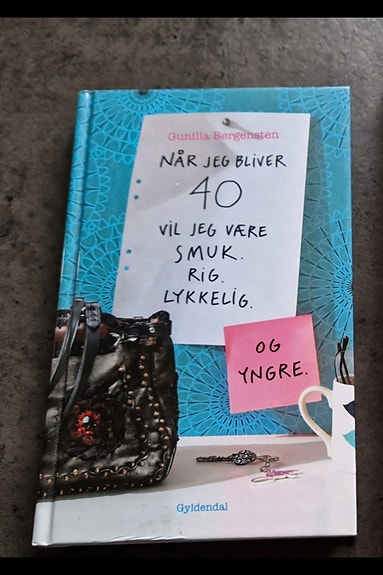 Gunilla Bergensten
NÅR JEG BLIVER
40
VIL JEG VÆRE
SMUK.
RIG.
LYKKELIG.
OG
YNGRE.
Gyldendal